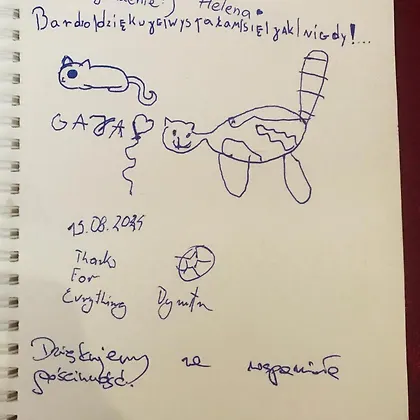 Helena
Bardzo|dziękuję|wyspałam|się|jak|nigdy!...
GAJA
Thanks
For
Evrything Dymitr
Dziękujemy za wspaniałą
gościnność.